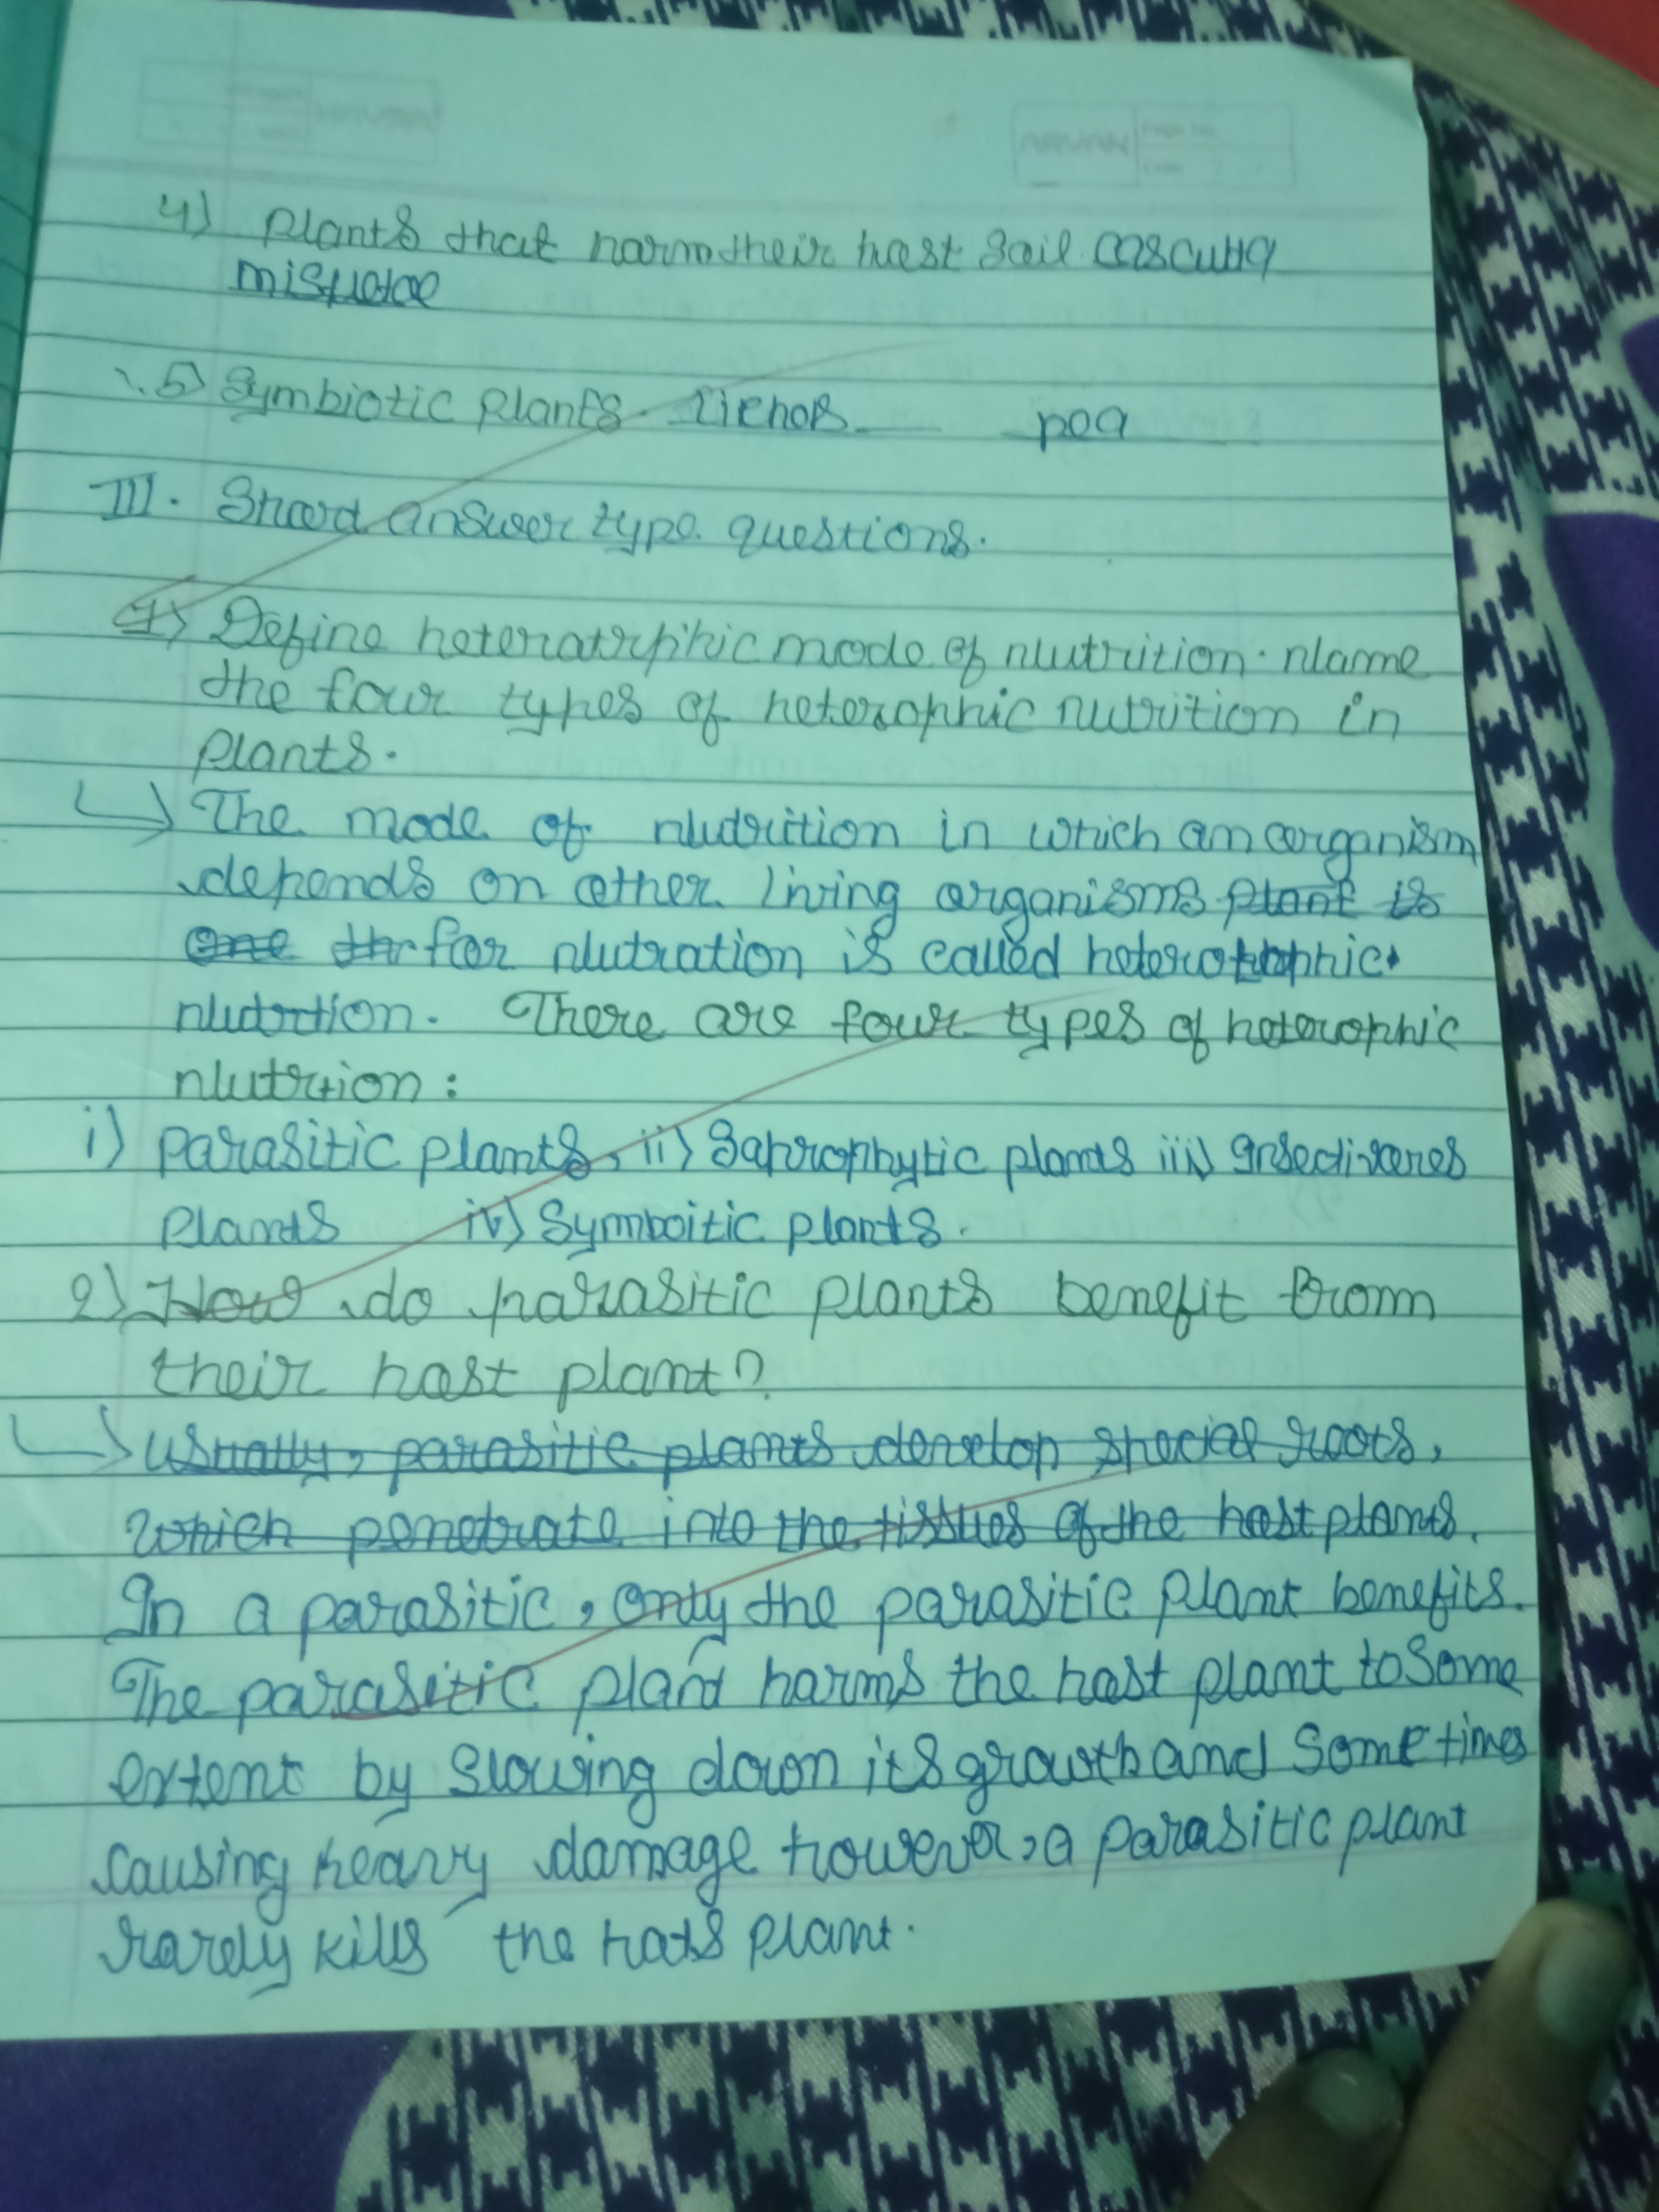 ARVAN Page No.
Date
4) Plants that harm their host Sail. Cascutta
misueloe
5) Symbiotic plants. Lichos pea
III. Shord answer type questions.
1) Define heteratrphic mode of Nutrition. Name
the four types of heterophic nutrition in
plants.
↳ The mode of Nudrition in which an organism
depends on other living organisms plant is
one thr for Nutration is called heterotrophic
Nudrtion. There are four types of heterophic
Nutrtion :
i) parasitic plants, ii) Saprophytic plants iii) Insectivores
plants iv) Symboitic plants.
2) How do parasitic plants benefit from
their host plant?
↳ Usually, parasitic plants develop special roots,
which penetrate into the tissues of the host plants.
In a parasitic, only the parasitic plant benefits.
The parasitic plant harms the host plant to some
extent by slowing down its growth and Sometimes
causing heavy damage however, a parasitic plant
rarely kills the hats plant.